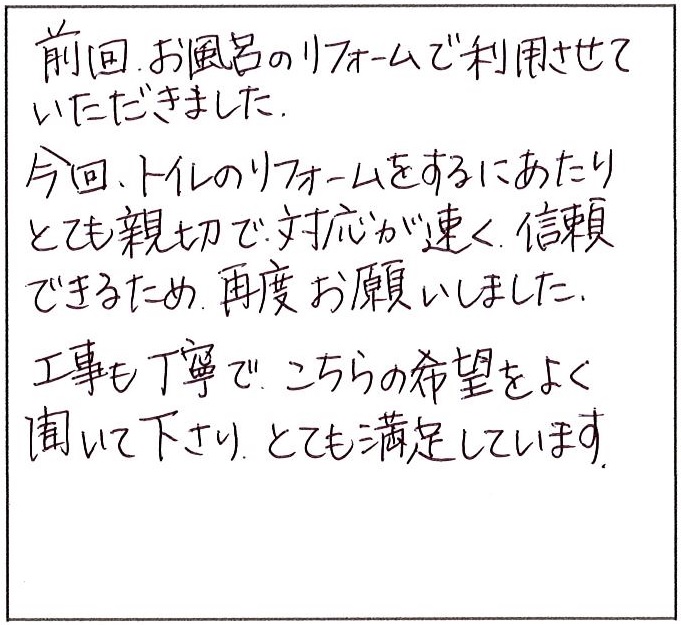 前回、お風呂のリフォームで利用させて
いただきました。
今回、トイレのリフォームをするにあたり
とても親切で、対応が速く、信頼
できるため、再度お願いしました。
工事も丁寧で、こちらの希望をよく
聞いて下さり、とても満足しています。